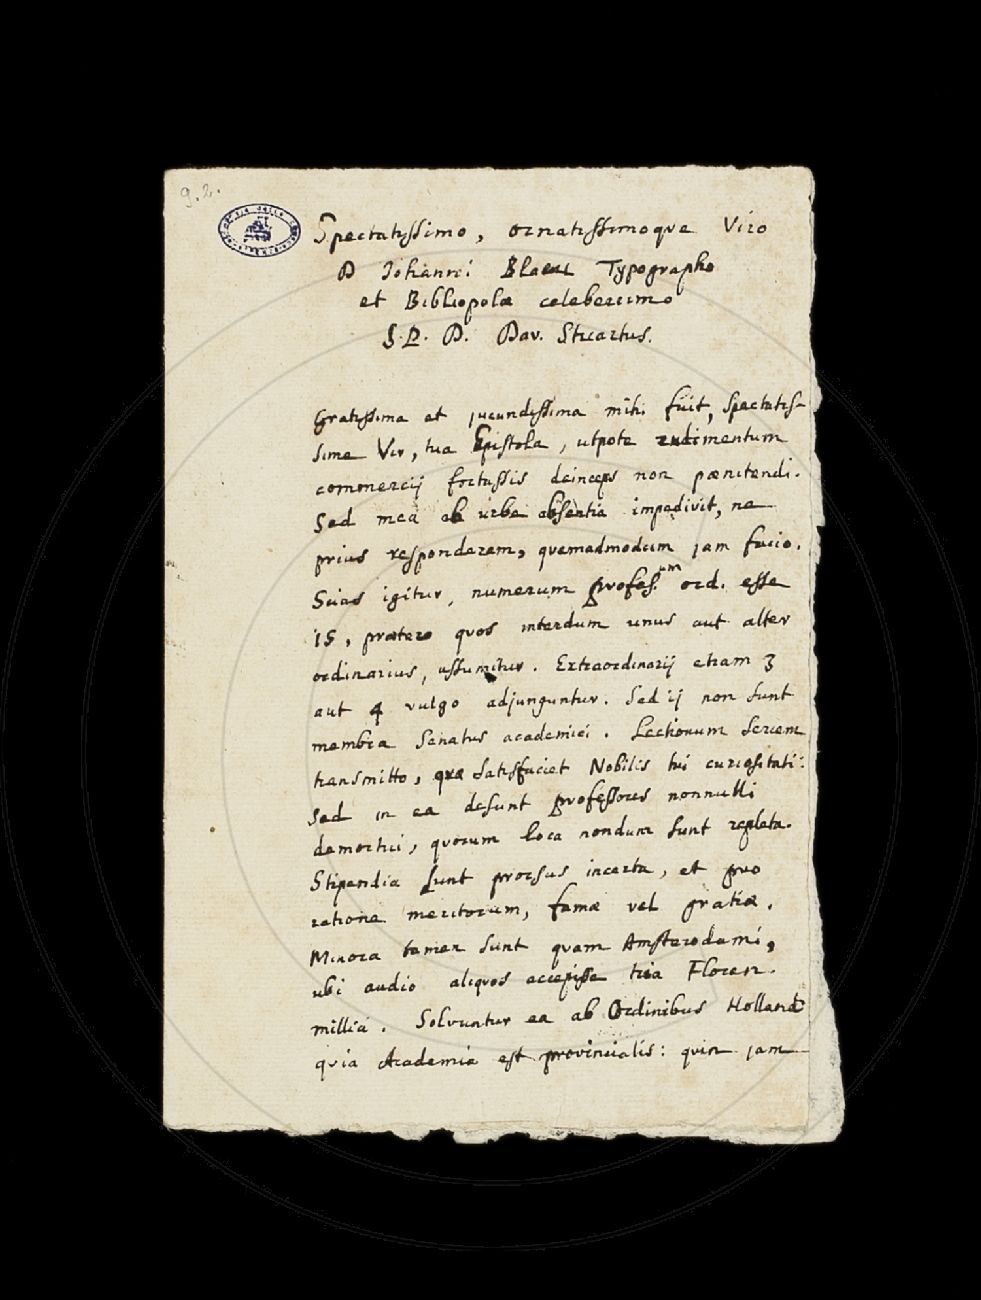 9.2.
Spectatissimo, ornatissimoque Viro
D Johanni Blaeu Typographo
et Bibliopolæ celeberrimo
S. P. D. Dav. Stuartus.
Gratissima et jucundissima mihi fuit, Spectatis-
sime Vir, tua Epistola, utpote rudimentum
commercij fortassis deinceps non pænitendi.
Sed mea ab urbe absentia impedivit, ne
prius responderem, quemadmodum jam facio.
Scias igitur, numerum profess.um ord. esse
15, præter quos interdum unus aut alter
ordinarius, assumitur. Extraordinarij etiam 3
aut 4 vulgo adjunguntur. Sed ij non sunt
membra Senatus academici. Lectionum Seriem
transmitto, quæ satisfaciet Nobilis tui curiositati:
Sed in ea desunt professores nonnulli
demortui, quorum loca nondum sunt repleta.
Stipendia sunt prorsus incerta, et pro
ratione meritorum, famæ vel gratiæ.
Minora tamen sunt quam Amsterodami,
ubi audio aliquos accepisse tria Floren.
millia. Solvuntur ea ab Ordinibus Holland
quia Academia est provincialis: quin jam